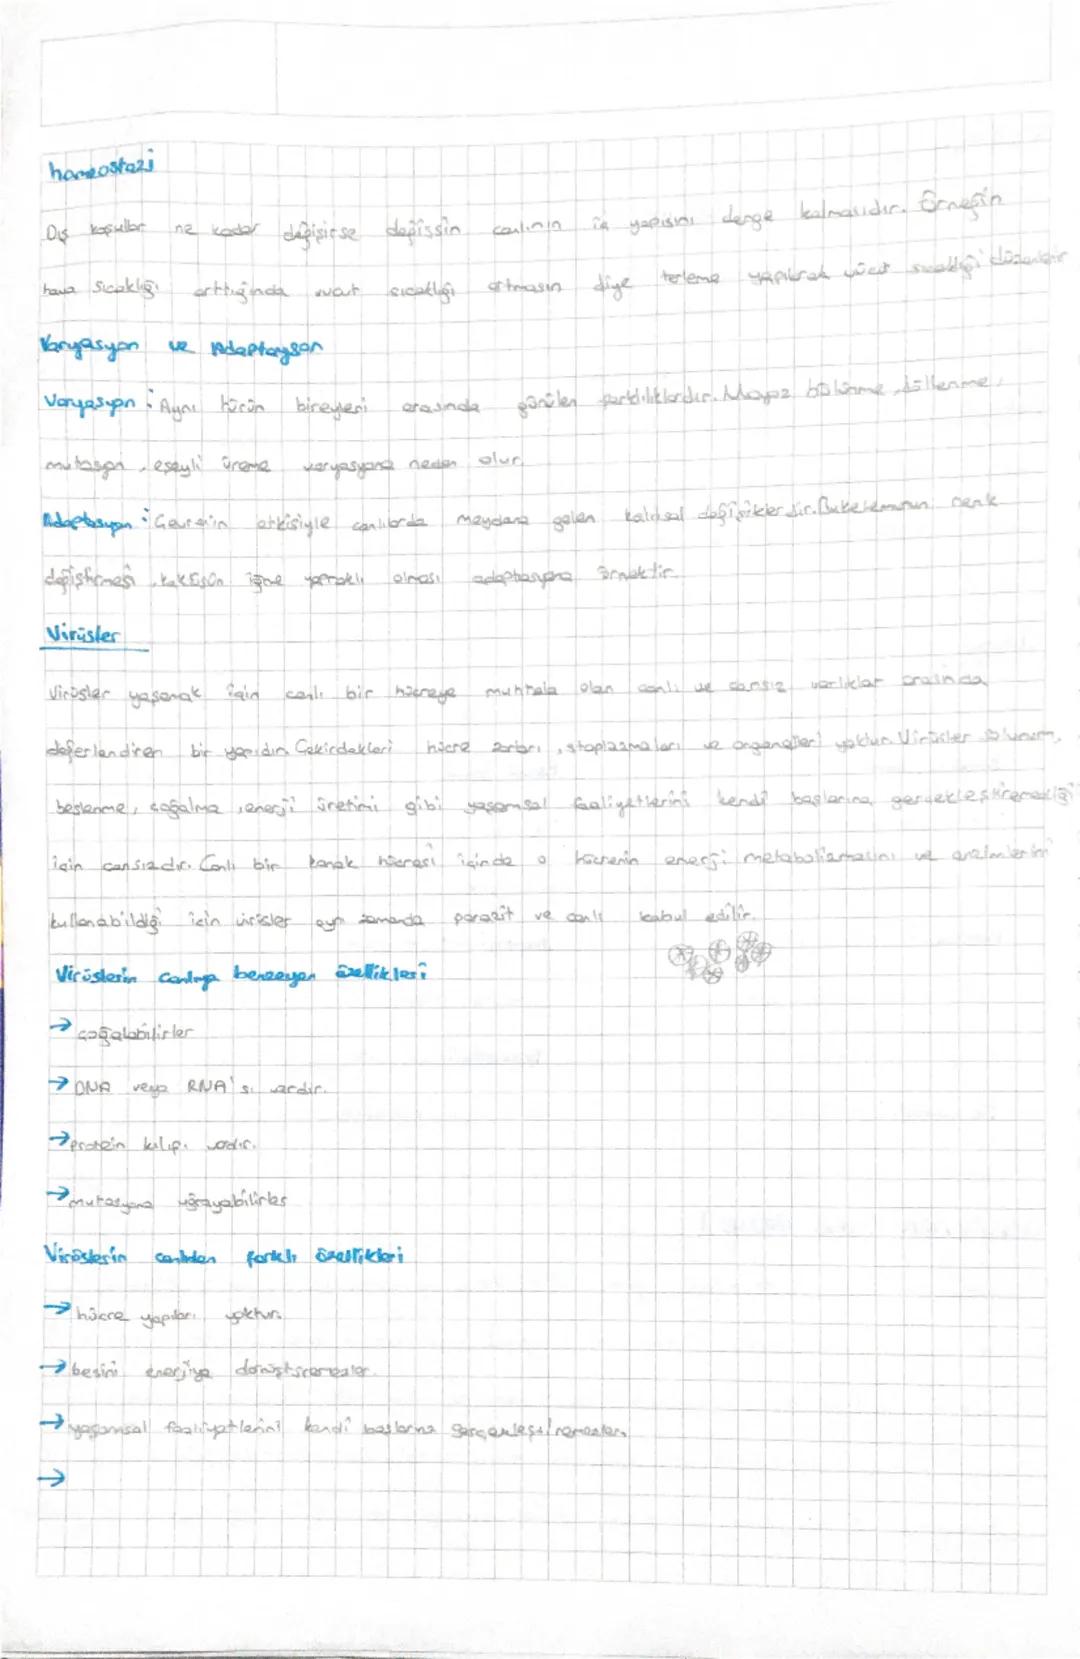 homeostazi
Dış koşullar ne kadar değişirse değişsin canlının iç yapısını denge kalmasıdır. Örneğin
hava sıcaklığı arttığında vücut sıcaklığı artmasın diye terleme yapılarak vücut sıcaklığı düzenlenir
Varyasyon ve Adaptayson
Varyasyon : Aynı türün bireyleri arasında görülen farklılıklardır. Mayoz bölünme, döllenme,
mutasyon, eşeyli üreme varyasyona neden olur.
Adaptasyon : Çevrenin etkisiyle canlılarda meydana gelen kalıtsal değişiklerdir. Bukelemunun renk
değiştirmesi, kaktüsün iğne yapraklı olması adaptasyona örnektir.
Virüsler
Virüsler yaşamak için canlı bir hücreye muhtala olan canlı ve cansız varlıklar arasında
değerlendiren bir yapıdır. Çekirdekleri hücre zarları, stoplazmaları ve organelleri yoktur. Virüsler solunum,
beslenme, çoğalma, enerji üretimi gibi yaşamsal faaliyetlerini kendi başlarına gerçekleştiremediği
için cansızdır. Canlı bir konak hücresi içinde o hücrenin enerji metabolizmasını ve enzimlerini
kullanabildiği için virüsler aynı zamanda parazit ve canlı kabul edilir.
Virüslerin canlıya benzeyen özellikleri
→ çoğalabilirler
→ DNA veya RNA'sı vardır.
→ protein kılıfı vardır.
→ mutasyona uğrayabilirler
Virüslerin canlıdan farklı özellikleri
→ hücre yapıları yoktur.
→ besini enerjiye dönüştüremezler.
→ yaşamsal faaliyetlerini kendi başlarına
→